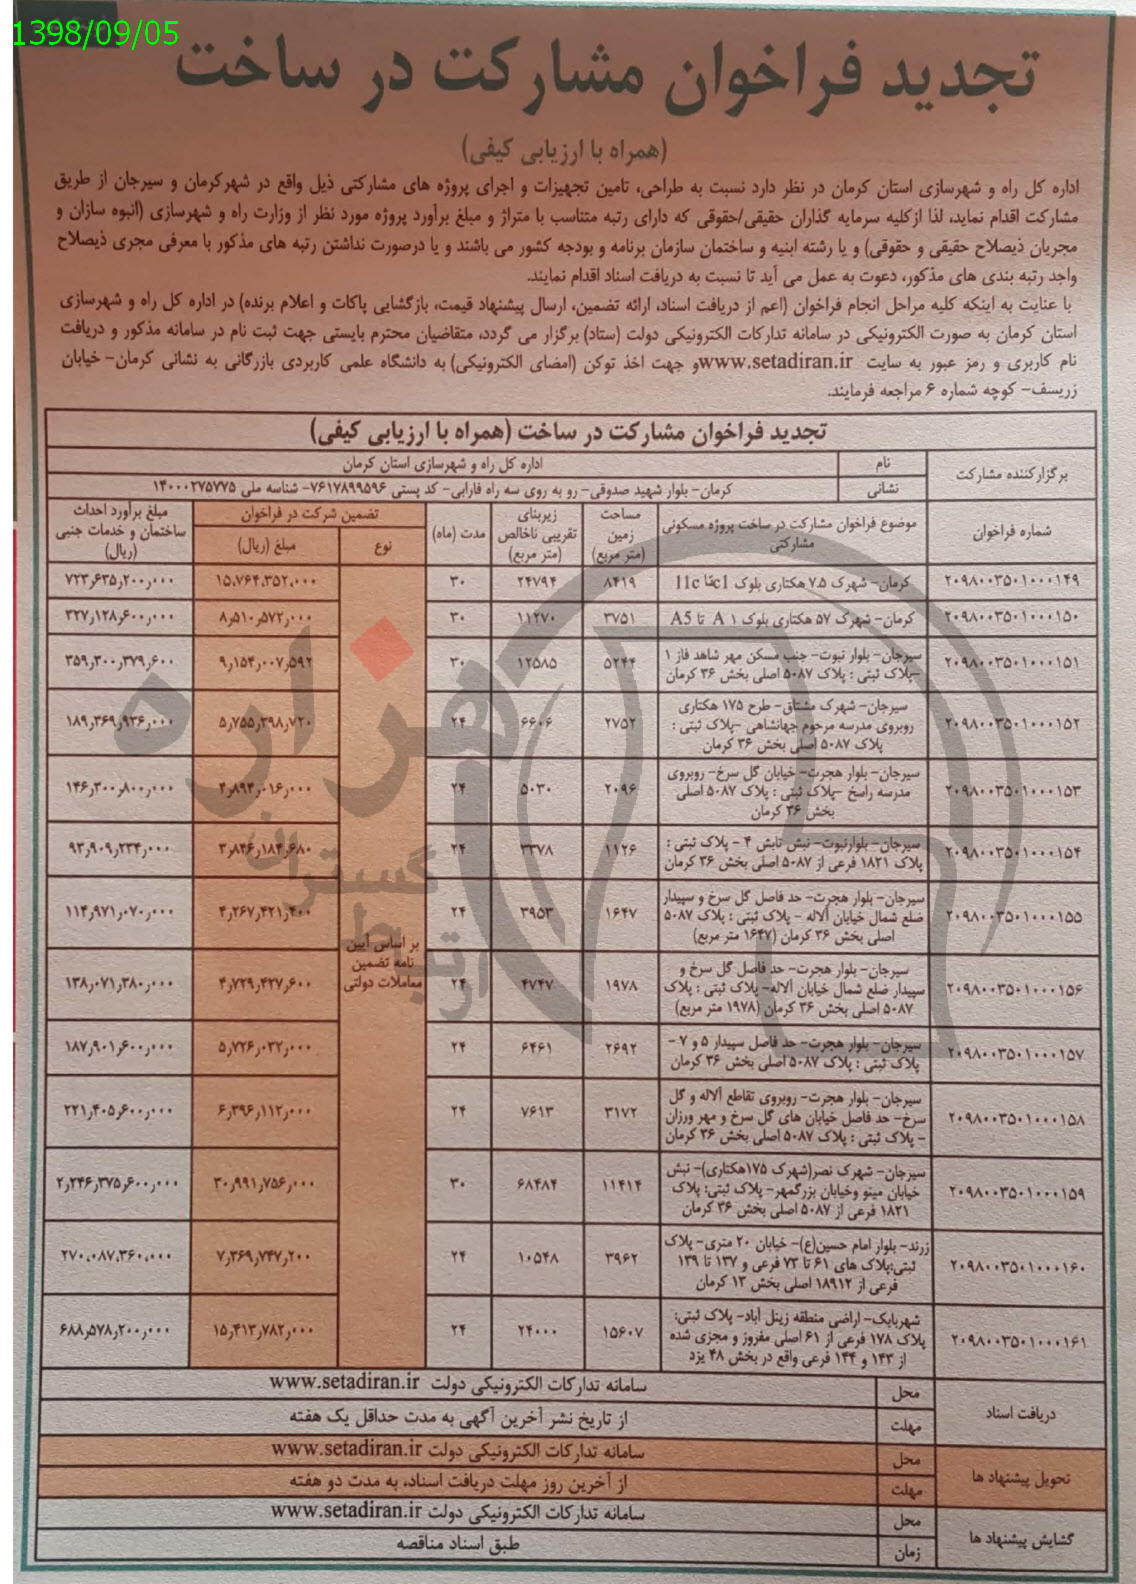 1398/09/05
تجدید فراخوان مشارکت در ساخت
(همراه با ارزیابی کیفی)
اداره کل راه و شهرسازی استان کرمان در نظر دارد نسبت به طراحی، تامین تجهیزات و اجرای پروژه های مشارکتی ذیل واقع در شهرکرمان و سیرجان از طریق
مشارکت اقدام نماید، لذا ازکلیه سرمایه گذاران حقیقی/حقوقی که دارای رتبه متناسب با متراژ و مبلغ برآورد پروژه مورد نظر از وزارت راه و شهرسازی (انبوه سازان و
مجریان ذیصلاح حقیقی و حقوقی) و یا رشته ابنیه و ساختمان سازمان برنامه و بودجه کشور می باشند و یا درصورت نداشتن رتبه های مذکور با معرفی مجری ذیصلاح
واجد رتبه بندی های مذکور، دعوت به عمل می آید تا نسبت به دریافت اسناد اقدام نمایند.
با عنایت به اینکه کلیه مراحل انجام فراخوان (اعم از دریافت اسناد، ارائه تضمین، ارسال پیشنهاد قیمت، بازگشایی پاکات و اعلام برنده) در اداره کل راه و شهرسازی
استان کرمان به صورت الکترونیکی در سامانه تدارکات الکترونیکی دولت (ستاد) برگزار می گردد، متقاضیان محترم بایستی جهت ثبت نام در سامانه مذکور و دریافت
نام کاربری و رمز عبور به سایت www.setadiran.ir و جهت اخذ توکن (امضای الکترونیکی) به دانشگاه علمی کاربردی بازرگانی به نشانی کرمان- خیابان
زریسف- کوچه شماره ۶ مراجعه فرمایند.
تجدید فراخوان مشارکت در ساخت (همراه با ارزیابی کیفی)
برگزارکننده مشارکت
نام اداره کل راه و شهرسازی استان کرمان
نشانی کرمان- بلوار شهید صدوقی- رو به روی سه راه فارابی- کد پستی ۷۶۱۷۸۹۹۵۹۶- شناسه ملی ۱۴۰۰۰۲۷۵۷۷۵
شماره فراخوان
موضوع فراخوان مشارکت در ساخت پروژه مسکونی
مشارکتی
مساحت
زمین
(متر مربع)
زیربنای
تقریبی ناخالص
(متر مربع)
مدت (ماه)
تضمین شرکت در فراخوان
نوع مبلغ (ریال)
مبلغ برآورد احداث
ساختمان و خدمات جنبی
(ریال)
بر اساس آیین
نامه تضمین
معاملات دولتی
۲۰۹۸۰۰۳۵۰۱۰۰۰۱۴۹ کرمان- شهرک ۷.۵ هکتاری بلوک c1 تا 11c ۸۴۱۹ ۲۴۷۹۴ ۳۰ ۱۵٫۷۶۴٫۳۵۲٫۰۰۰ ۷۲۳٫۶۳۵٫۲۰۰٫۰۰۰
۲۰۹۸۰۰۳۵۰۱۰۰۰۱۵۰ کرمان- شهرک ۵۷ هکتاری بلوک A ۱ تا A5 ۳۷۵۱ ۱۱۲۷۰ ۳۰ ۸٫۵۱۰٫۵۷۲٫۰۰۰ ۳۲۷٫۱۲۸٫۶۰۰٫۰۰۰
۲۰۹۸۰۰۳۵۰۱۰۰۰۱۵۱ سیرجان- بلوار نبوت- جنب مسکن مهر شاهد فاز ۱
-پلاک ثبتی : پلاک ۵۰۸۷ اصلی بخش ۳۶ کرمان ۵۲۴۴ ۱۲۵۸۵ ۳۰ ۹٫۱۵۴٫۰۰۷٫۵۹۲ ۳۵۹٫۳۰۰٫۳۷۹٫۶۰۰
۲۰۹۸۰۰۳۵۰۱۰۰۰۱۵۲ سیرجان- شهرک مشتاق- طرح ۱۷۵ هکتاری
روبروی مدرسه مرحوم جهانشاهی -پلاک ثبتی :
پلاک ۵۰۸۷ اصلی بخش ۳۶ کرمان ۲۷۵۲ ۶۶۰۶ ۲۴ ۵٫۷۵۵٫۳۹۸٫۷۲۰ ۱۸۹٫۳۶۹٫۹۳۶٫۰۰۰
۲۰۹۸۰۰۳۵۰۱۰۰۰۱۵۳ سیرجان- بلوار هجرت- خیابان گل سرخ- روبروی
مدرسه راسخ -پلاک ثبتی : پلاک ۵۰۸۷ اصلی
بخش ۳۶ کرمان ۲۰۹۶ ۵۰۳۰ ۲۴ ۴٫۸۹۴٫۰۱۶٫۰۰۰ ۱۴۶٫۳۰۰٫۸۰۰٫۰۰۰
۲۰۹۸۰۰۳۵۰۱۰۰۰۱۵۴ سیرجان- بلوارنبوت- نبش تابش ۴ - پلاک ثبتی :
پلاک ۱۸۲۱ فرعی از ۵۰۸۷ اصلی بخش ۳۶ کرمان ۱۱۲۶ ۳۳۷۸ ۲۴ ۳٫۸۴۶٫۱۸۴٫۶۸۰ ۹۳٫۹۰۹٫۲۳۴٫۰۰۰
۲۰۹۸۰۰۳۵۰۱۰۰۰۱۵۵ سیرجان- بلوار هجرت- حد فاصل گل سرخ و سپیدار
ضلع شمال خیابان آلاله - پلاک ثبتی : پلاک ۵۰۸۷
اصلی بخش ۳۶ کرمان (۱۶۴۷ متر مربع) ۱۶۴۷ ۳۹۵۳ ۲۴ ۴٫۲۶۷٫۴۲۱٫۴۰۰ ۱۱۴٫۹۷۱٫۰۷۰٫۰۰۰
۲۰۹۸۰۰۳۵۰۱۰۰۰۱۵۶ سیرجان- بلوار هجرت- حد فاصل گل سرخ و
سپیدار ضلع شمال خیابان آلاله- پلاک ثبتی : پلاک
۵۰۸۷ اصلی بخش ۳۶ کرمان (۱۹۷۸ متر مربع) ۱۹۷۸ ۴۷۴۷ ۲۴ ۴٫۷۲۹٫۴۲۷٫۶۰۰ ۱۳۸٫۰۷۱٫۳۸۰٫۰۰۰
۲۰۹۸۰۰۳۵۰۱۰۰۰۱۵۷ سیرجان- بلوار هجرت- حد فاصل سپیدار ۵ و ۷ -
پلاک ثبتی : پلاک ۵۰۸۷ اصلی بخش ۳۶ کرمان ۲۶۹۲ ۶۴۶۱ ۲۴ ۵٫۷۲۶٫۰۳۲٫۰۰۰ ۱۸۷٫۹۰۱٫۶۰۰٫۰۰۰
۲۰۹۸۰۰۳۵۰۱۰۰۰۱۵۸ سیرجان- بلوار هجرت- روبروی تقاطع آلاله و گل
سرخ- حد فاصل خیابان های گل سرخ و مهر ورزان
- پلاک ثبتی : پلاک ۵۰۸۷ اصلی بخش ۳۶ کرمان ۳۱۷۲ ۷۶۱۳ ۲۴ ۶٫۳۹۶٫۱۱۲٫۰۰۰ ۲۲۱٫۴۰۵٫۶۰۰٫۰۰۰
۲۰۹۸۰۰۳۵۰۱۰۰۰۱۵۹ سیرجان- شهرک نصر(شهرک ۱۷۵هکتاری)- نبش
خیابان مینو وخیابان بزرگمهر- پلاک ثبتی: پلاک
۱۸۲۱ فرعی از ۵۰۸۷ اصلی بخش ۳۶ کرمان ۱۱۴۱۴ ۶۸۴۸۴ ۳۰ ۳۰٫۹۹۱٫۷۵۶٫۰۰۰ ۲٫۲۴۶٫۳۷۵٫۶۰۰٫۰۰۰
۲۰۹۸۰۰۳۵۰۱۰۰۰۱۶۰ زرند- بلوار امام حسین(ع)- خیابان ۲۰ متری- پلاک
ثبتی:پلاک های ۶۱ تا ۷۳ فرعی و ۱۳۷ تا ۱۳۹
فرعی از ۱۸۹۱۲ اصلی بخش ۱۳ کرمان ۳۹۶۲ ۱۰۵۴۸ ۲۴ ۷٫۳۶۹٫۷۴۷٫۲۰۰ ۲۷۰٫۰۸۷٫۳۶۰٫۰۰۰
۲۰۹۸۰۰۳۵۰۱۰۰۰۱۶۱ شهربابک- اراضی منطقه زینل آباد- پلاک ثبتی:
پلاک ۱۷۸ فرعی از ۶۱ اصلی مفروز و مجزی شده
از ۱۴۳ و ۱۴۴ فرعی واقع در بخش ۴۸ یزد ۱۵۶۰۷ ۲۴۰۰۰ ۲۴ ۱۵٫۴۱۳٫۷۸۲٫۰۰۰ ۶۸۸٫۵۷۸٫۲۰۰٫۰۰۰
دریافت اسناد
محل سامانه تدارکات الکترونیکی دولت www.setadiran.ir
مهلت از تاریخ نشر آخرین آگهی به مدت حداقل یک هفته
تحویل پیشنهاد ها
محل سامانه تدارکات الکترونیکی دولت www.setadiran.ir
مهلت از آخرین روز مهلت دریافت اسناد، به مدت دو هفته
گشایش پیشنهاد ها
محل سامانه تدارکات الکترونیکی دولت www.setadiran.ir
زمان طبق اسناد مناقصه
هزاره
گستران
ارتباط